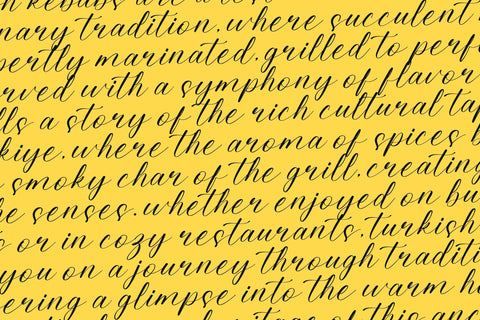 kebabs are
nary tradition, where succulent
pertly marinated, grilled to perf
rved with a symphony of flavor
lls a story of the rich cultural tap
kiye, where the aroma of spices b
smoky char of the grill, creating
he senses. whether enjoyed on bu
or in cozy restaurants, turkish
you on a journey through traditi
ering a glimpse into the warm h
of this anc